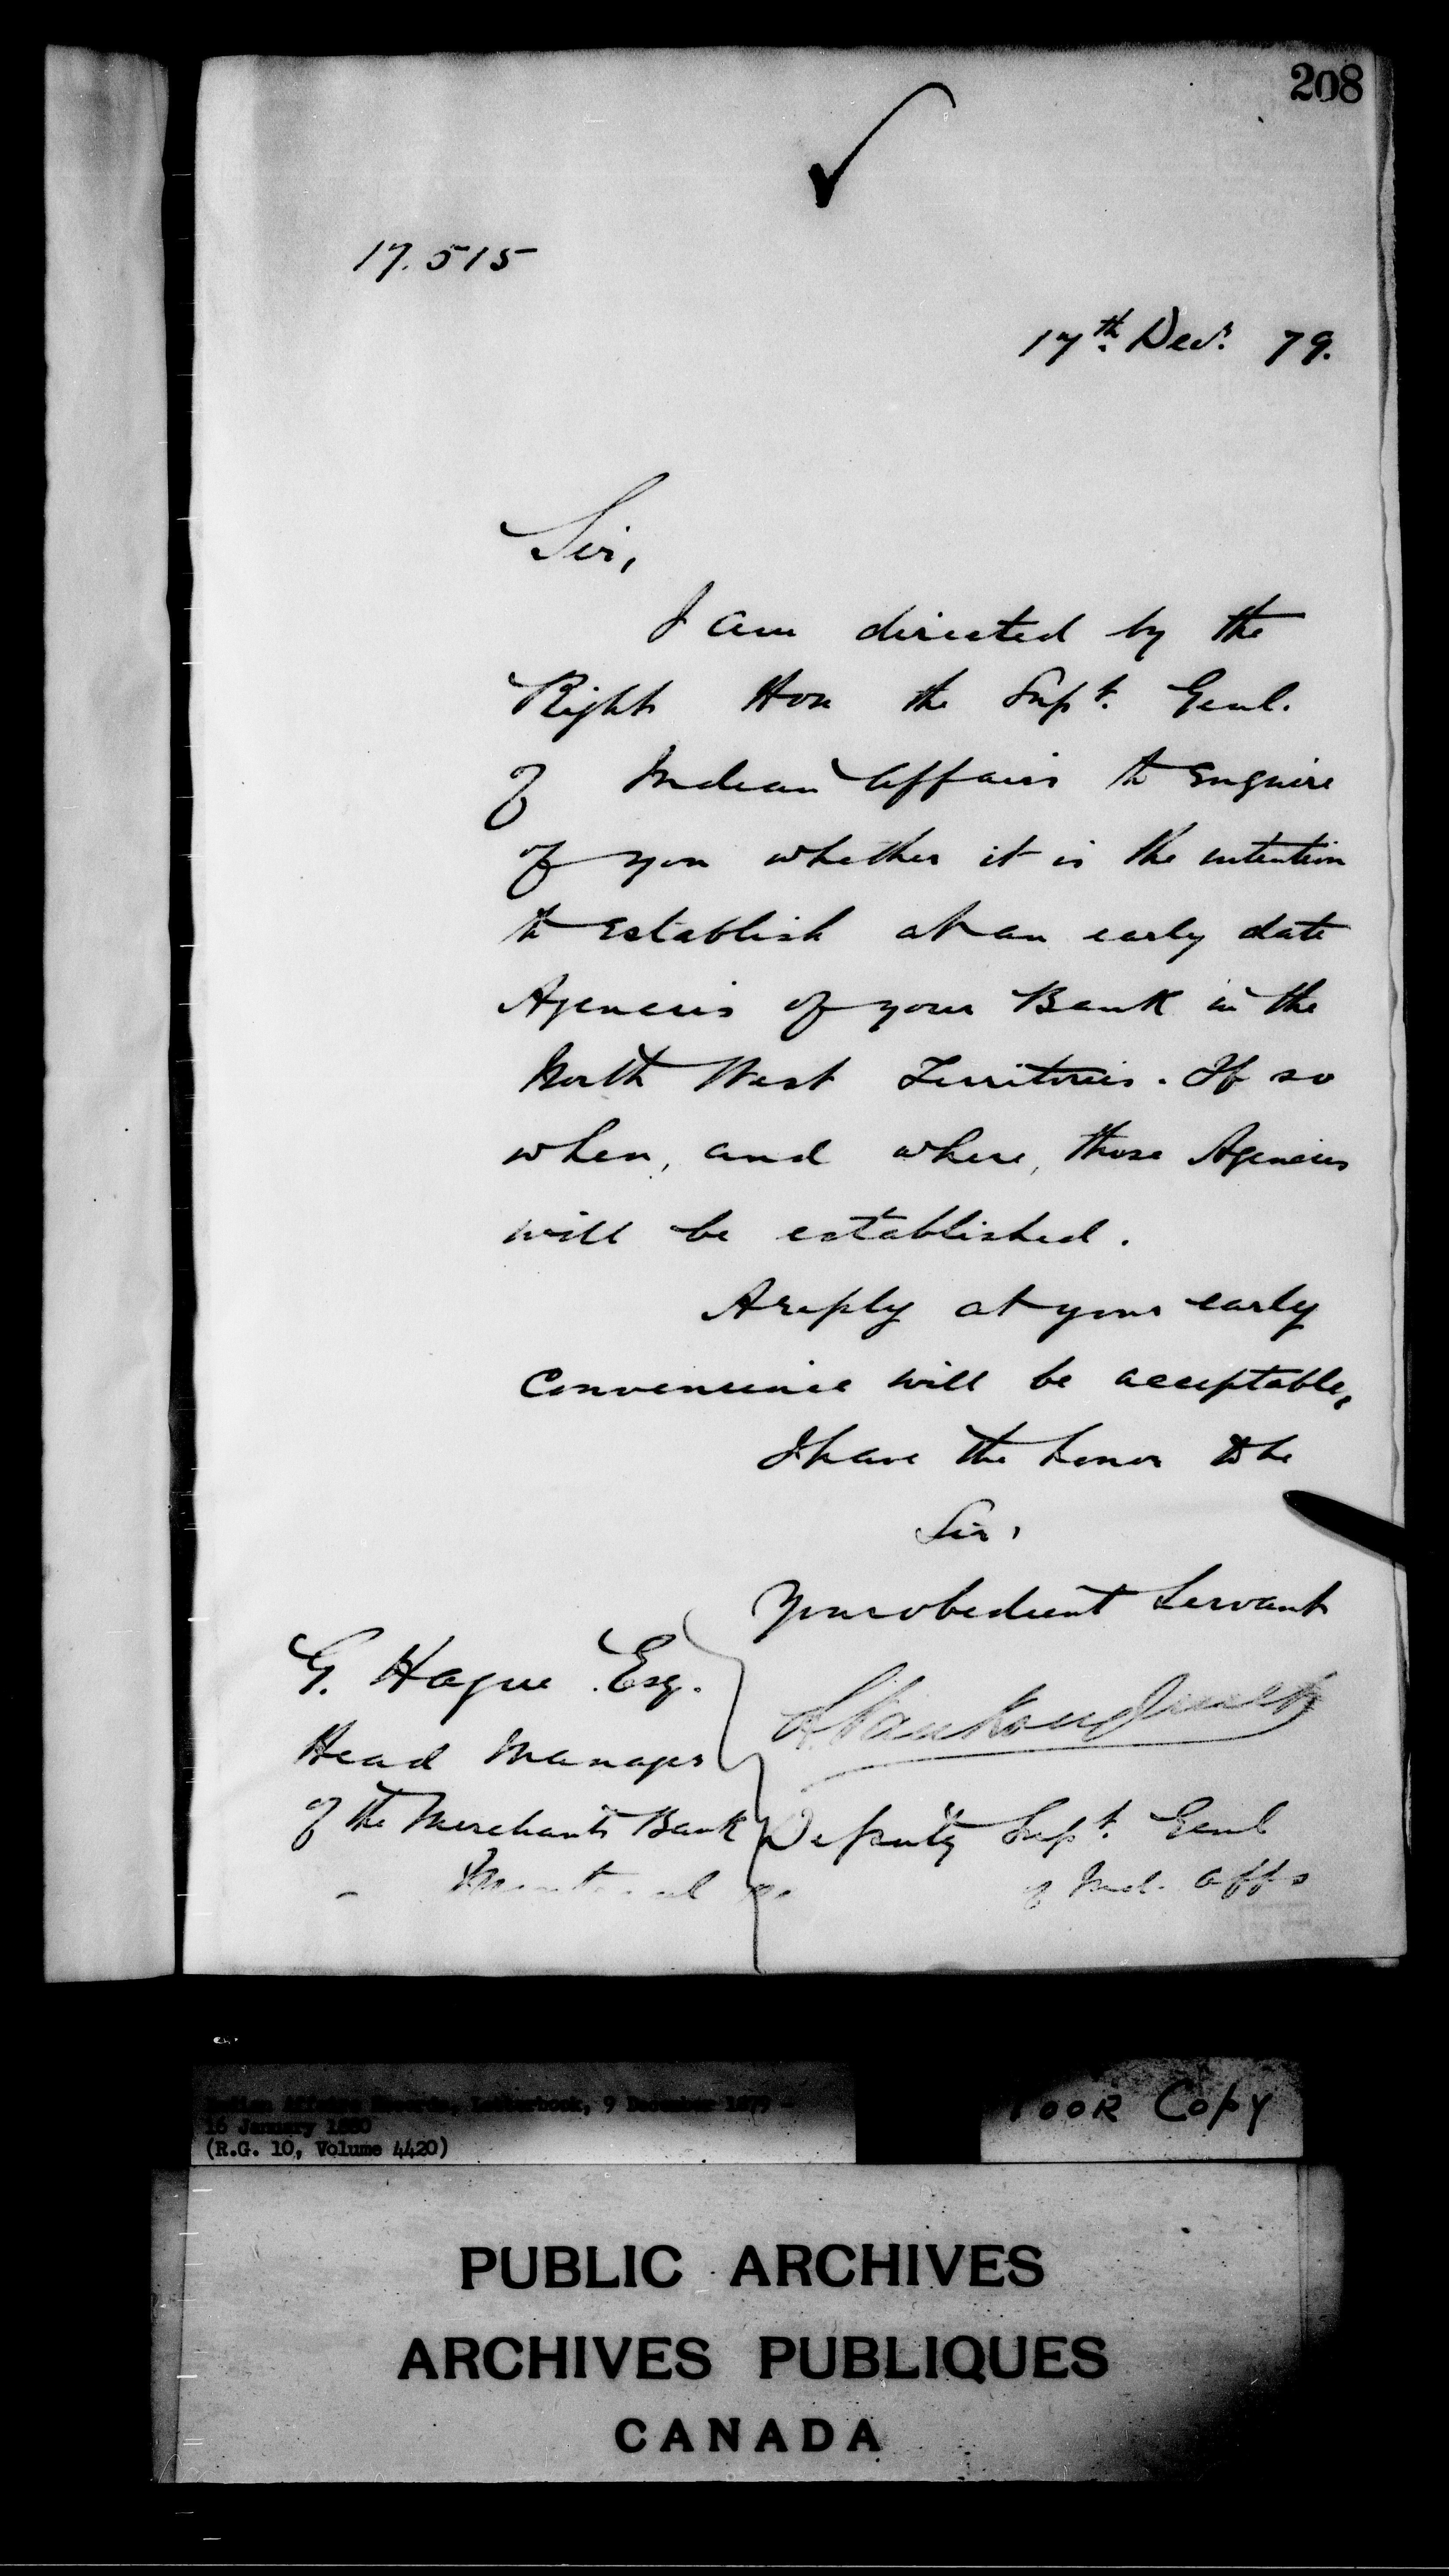 208
17.515
17th Decr. 79.
Sir,
I am directed by the
Right Hon the Supt. Genl.
of Indian Affairs to enquire
of you whether it is the intention
to establish at an early date
Agencies of your Bank in the
North West Territories. If so
when, and where, those Agencies
will be established.
A reply at your early
Convenience will be acceptable,
I have the honor to be
Sir,
Your obedient Servant
G. Hague Esq.
Head Manager
of the Merchants Bank
Montreal
L Vankoughnet
Deputy Supt. Genl
of Ind. Affs
Indian Affairs Records, Letterbook, 9 December 1879 -
16 January 1880
(R.G. 10, Volume 4420)
POOR COPY
PUBLIC ARCHIVES
ARCHIVES PUBLIQUES
CANADA